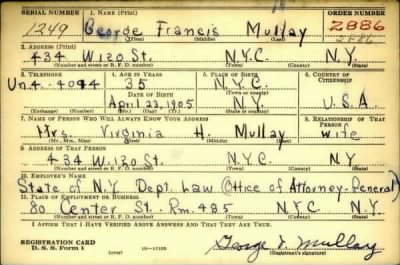 SERIAL NUMBER 1. NAME (Print) ORDER NUMBER
1249 George Francis Mullay 2886
2886
(First) (Middle) (Last)
2. ADDRESS (Print)
434 W 120 St. N.Y.C. N.Y.
(Number and street or R. F. D. number) (Town) (County) (State)
3. TELEPHONE 4. AGE IN YEARS 5. PLACE OF BIRTH 6. COUNTRY OF CITIZENSHIP
Un. 4. 4094 35 N.Y.C.
DATE OF BIRTH (Town or county)
April 23, 1905 N.Y. U.S.A
(Exchange) (Number) (Mo.) (Day) (Yr.) (State or country)
7. NAME OF PERSON WHO WILL ALWAYS KNOW YOUR ADDRESS 8. RELATIONSHIP OF THAT PERSON
Mrs. Virginia H. Mullay Wife
(Mr., Mrs., Miss) (First) (Middle) (Last)
9. ADDRESS OF THAT PERSON
434 W. 120 St. N.Y.C. N.Y.
(Number and street or R. F. D. number) (Town) (County) (State)
10. EMPLOYER'S NAME
State of N.Y. Dept. Law (Office of Attorney-General)
11. PLACE OF EMPLOYMENT OR BUSINESS
80 Center St. Rm. 485 N.Y.C. N.Y.
(Number and street or R. F. D. number) (Town) (County) (State)
I AFFIRM THAT I HAVE VERIFIED ABOVE ANSWERS AND THAT THEY ARE TRUE.
REGISTRATION CARD
D. S. S. Form 1 (over) 16—17105 George F. Mullay
(Registrant's signature)